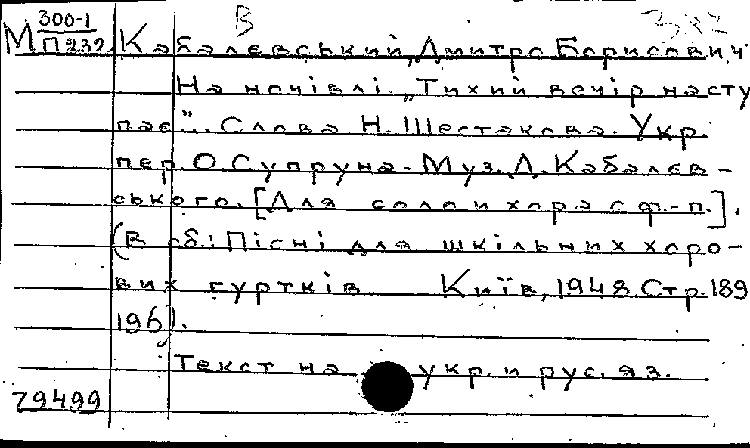 В
М 300-1
П232
Кабалевський, Дмитро Борисович
На ночівлі. „Тихий вечір насту
пає"... Слова Н. Шестакова. Укр.
пер. О. Супруна. Муз. Д. Кабалев-
ського. [Для соло и хора с ф.-п.].
(В сб: Пісні для шкільних хоро-
вих гуртків Київ, 1948. Стр. 189
196).
Текст на укр. и рус. яз.
79499